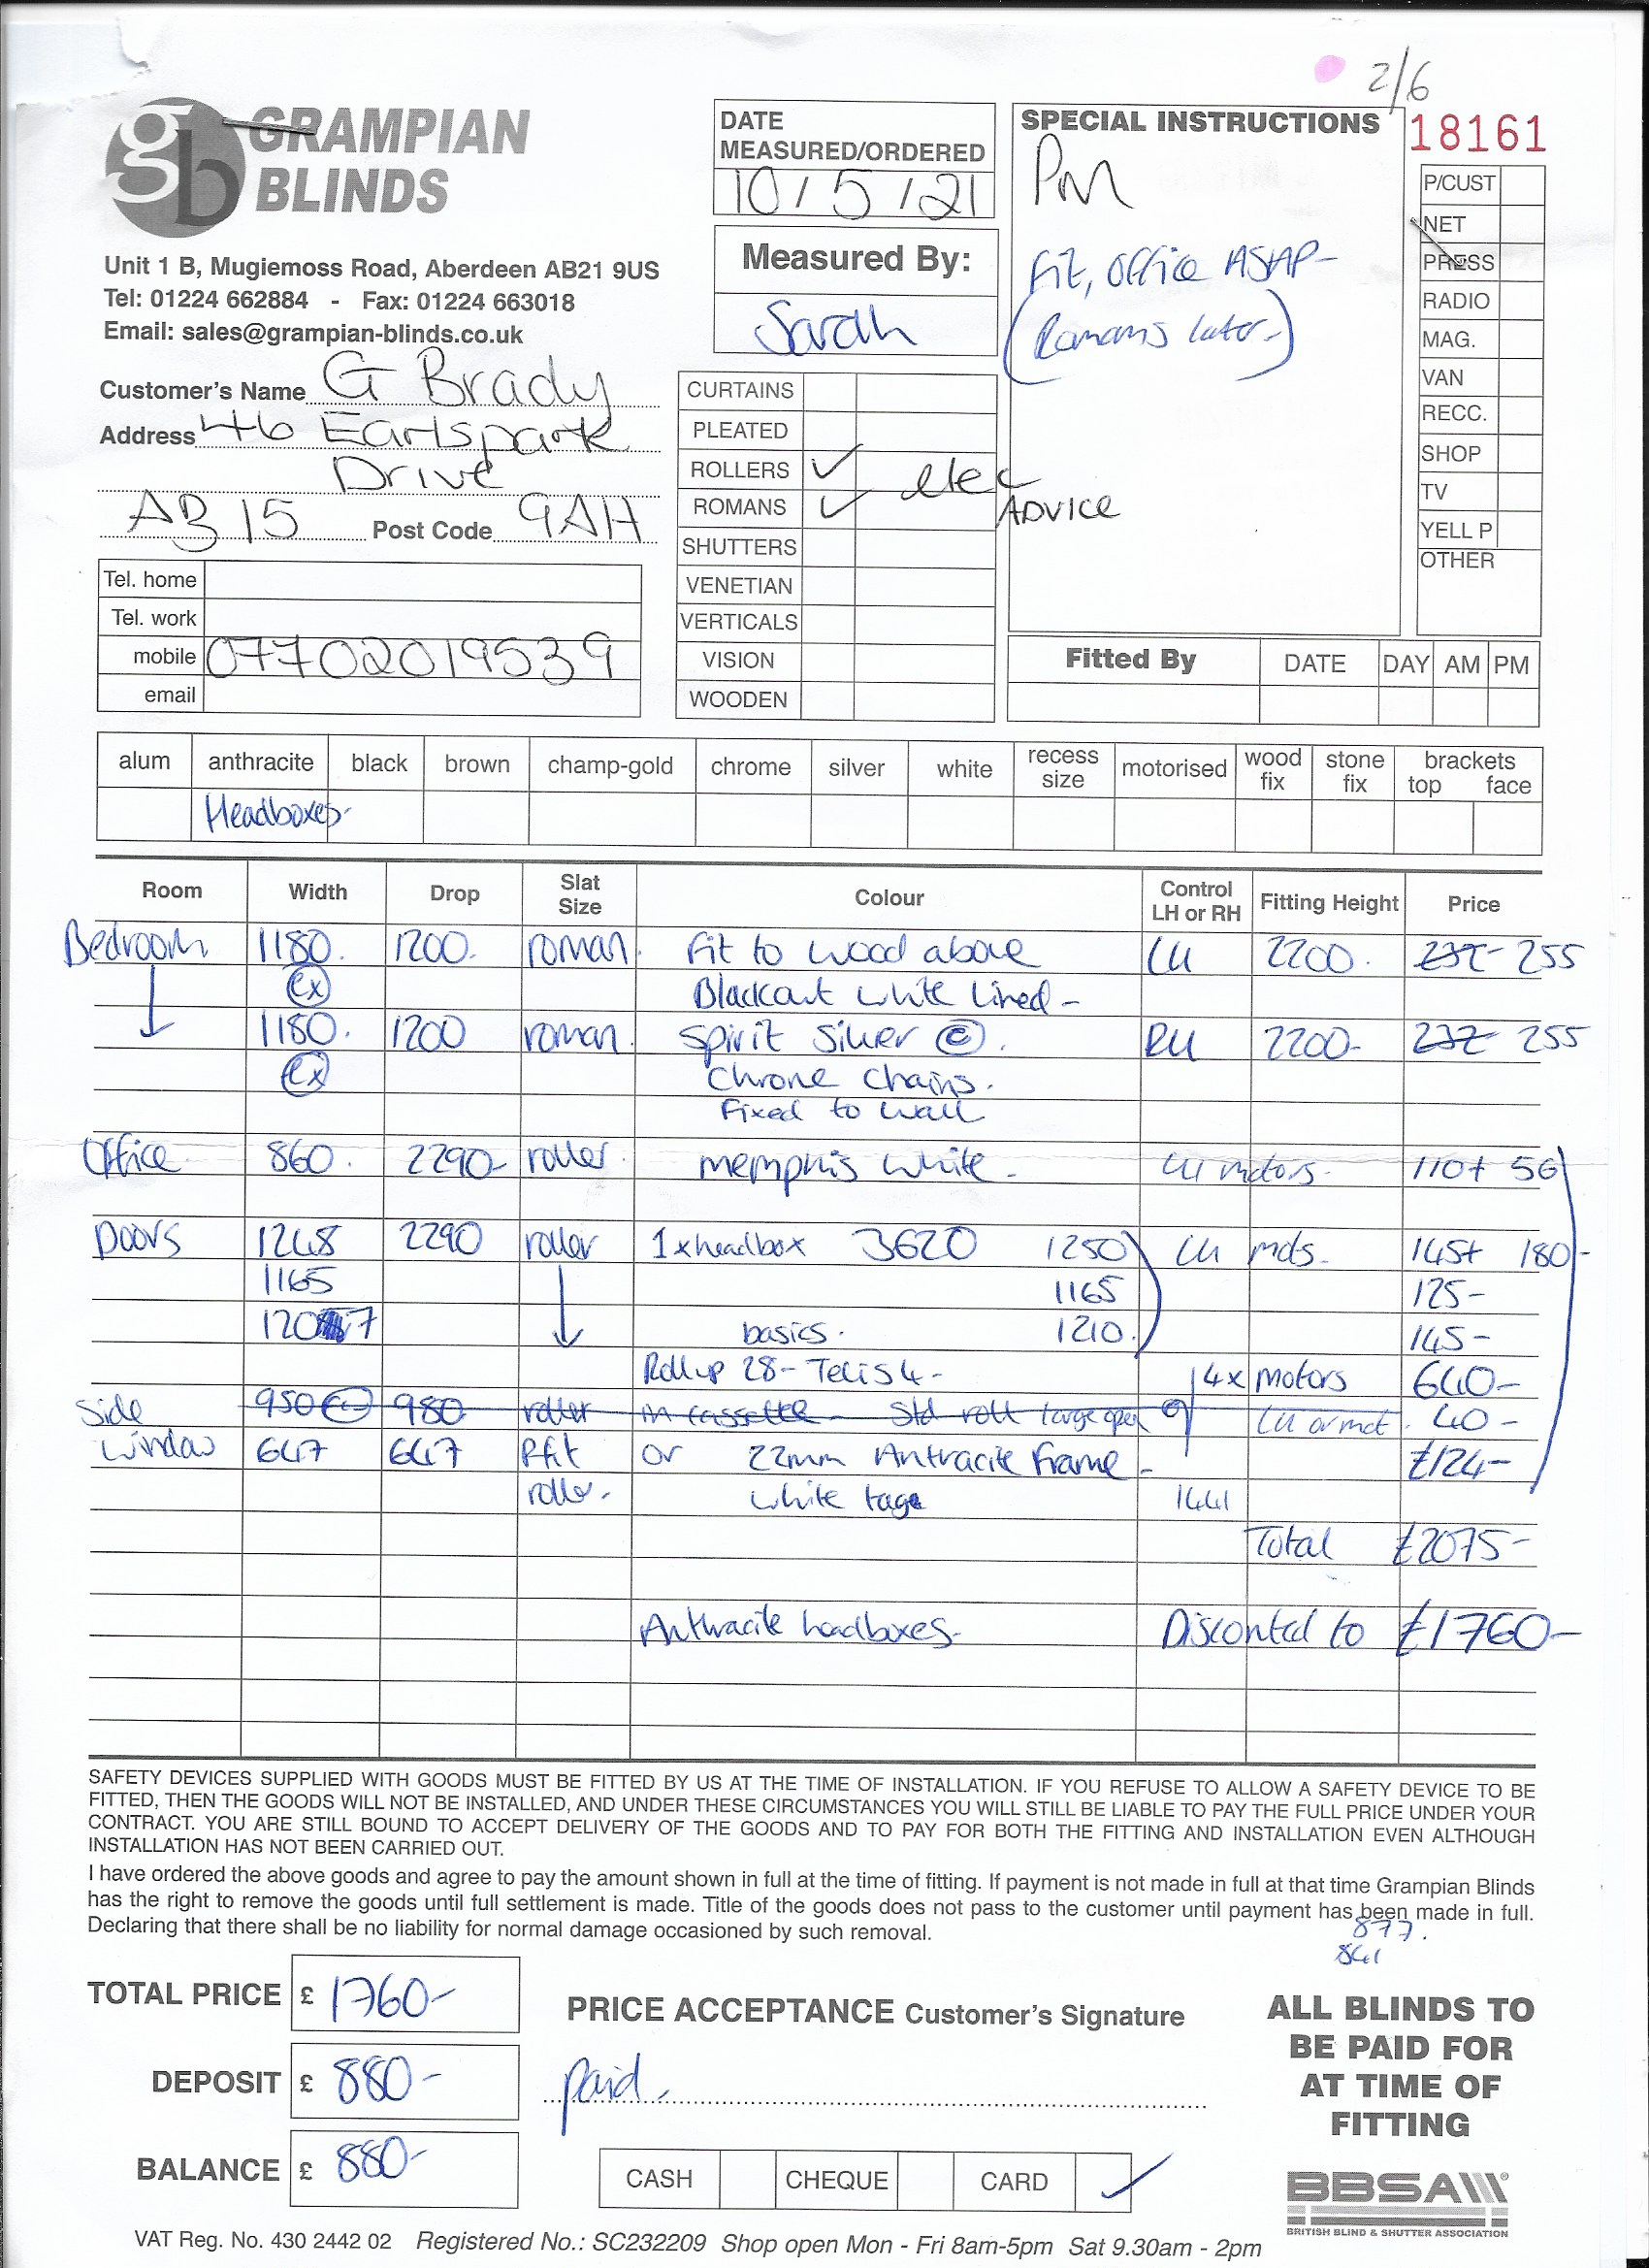 2/6
gb GRAMPIAN BLINDS
Unit 1 B, Mugiemoss Road, Aberdeen AB21 9US
Tel: 01224 662884 - Fax: 01224 663018
Email: sales@grampian-blinds.co.uk
DATE
MEASURED/ORDERED
10/5/21
Measured By:
Sarah
SPECIAL INSTRUCTIONS
PM
Fit, Office ASAP-
(Romans later-)
18161
P/CUST
NET
PRESS
RADIO
MAG.
VAN
RECC.
SHOP
TV
YELL P
OTHER
Customer's Name G Brady
Address 46 Earlspark
Drive
AB15 Post Code 9AH
Tel. home
Tel. work
mobile 07702019539
email
CURTAINS
PLEATED
ROLLERS ✓ elec
ROMANS ✓ ADVICE
SHUTTERS
VENETIAN
VERTICALS
VISION
WOODEN
Fitted By DATE DAY AM PM
alum anthracite black brown champ-gold chrome silver white recess size motorised wood fix stone fix brackets top face
Headboxes-
Room Width Drop Slat Size Colour Control LH or RH Fitting Height Price
Bedroom 1180. 1200. roman. Fit to wood above LH 2200. 232 255
(ex) Blackout white lined -
1180. 1200 roman. Spirit Silver ©. RH 2200- 232 255
(ex) Chrone chains.
Fixed to wall
Office 860. 2290- roller. Memphis White. LH motors. 110+ 56
Doors 1248 2290 roller 1xheadbox 3620 1250 LH mds. 145+ 180-
1165 1165 125-
1207 basics. 1210. 145-
Roll up 28- Telis 4- 4x motors 640-
Side 950 980 roller in cassette - Std roll large open LH or mot. 40-
Window 647 647 Pfit or 22mm Antracite Frame - £124-
roller. white tage 1441
Total £2075-
Anthracite headboxes- Discounted to £1760-
SAFETY DEVICES SUPPLIED WITH GOODS MUST BE FITTED BY US AT THE TIME OF INSTALLATION. IF YOU REFUSE TO ALLOW A SAFETY DEVICE TO BE
FITTED, THEN THE GOODS WILL NOT BE INSTALLED, AND UNDER THESE CIRCUMSTANCES YOU WILL STILL BE LIABLE TO PAY THE FULL PRICE UNDER YOUR
CONTRACT. YOU ARE STILL BOUND TO ACCEPT DELIVERY OF THE GOODS AND TO PAY FOR BOTH THE FITTING AND INSTALLATION EVEN ALTHOUGH
INSTALLATION HAS NOT BEEN CARRIED OUT.
I have ordered the above goods and agree to pay the amount shown in full at the time of fitting. If payment is not made in full at that time Grampian Blinds
has the right to remove the goods until full settlement is made. Title of the goods does not pass to the customer until payment has been made in full.
Declaring that there shall be no liability for normal damage occasioned by such removal.
877.
841
TOTAL PRICE £ 1760-
DEPOSIT £ 880-
BALANCE £ 880-
PRICE ACCEPTANCE Customer's Signature
paid.
CASH CHEQUE CARD ✓
ALL BLINDS TO
BE PAID FOR
AT TIME OF
FITTING
BBSA
BRITISH BLIND & SHUTTER ASSOCIATION
VAT Reg. No. 430 2442 02 Registered No.: SC232209 Shop open Mon - Fri 8am-5pm Sat 9.30am - 2pm